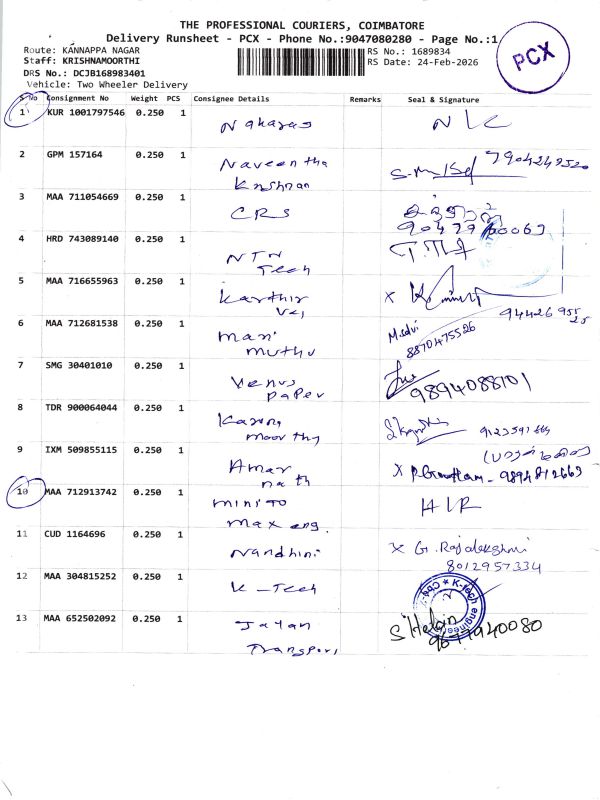 THE PROFESSIONAL COURIERS, COIMBATORE
Delivery Runsheet - PCX - Phone No.:9047080280 - Page No.:1
PCX
Route: KANNAPPA NAGAR
Staff: KRISHNAMOORTHI
DRS No.: DCJB168983401
Vehicle: Two Wheeler Delivery
RS No.: 1689834
RS Date: 24-Feb-2026
S No Consignment No Weight PCS Consignee Details Remarks Seal & Signature
1 KUR 1001797546 0.250 1 Nakaras
2 GPM 157164 0.250 1 Naveentha
Krishnan
3 MAA 711054669 0.250 1 CRS
4 HRD 743089140 0.250 1 NTN
Tech
5 MAA 716655963 0.250 1 Karthir
Vel
6 MAA 712681538 0.250 1 Mari
muthu M.selvi
8870475526
7 SMG 30401010 0.250 1 Venus
paper 9894088101
8 TDR 900064044 0.250 1
moorthy
9 IXM 509855115 0.250 1 Amar
nath 9894812663
10 MAA 712913742 0.250 1
max eng.
11 CUD 1164696 0.250 1 Nandhini X G. Rajalekshmi
8012957334
12 MAA 304815252 0.250 1 K-Tech
13 MAA 652502092 0.250 1 Jayan
Transport